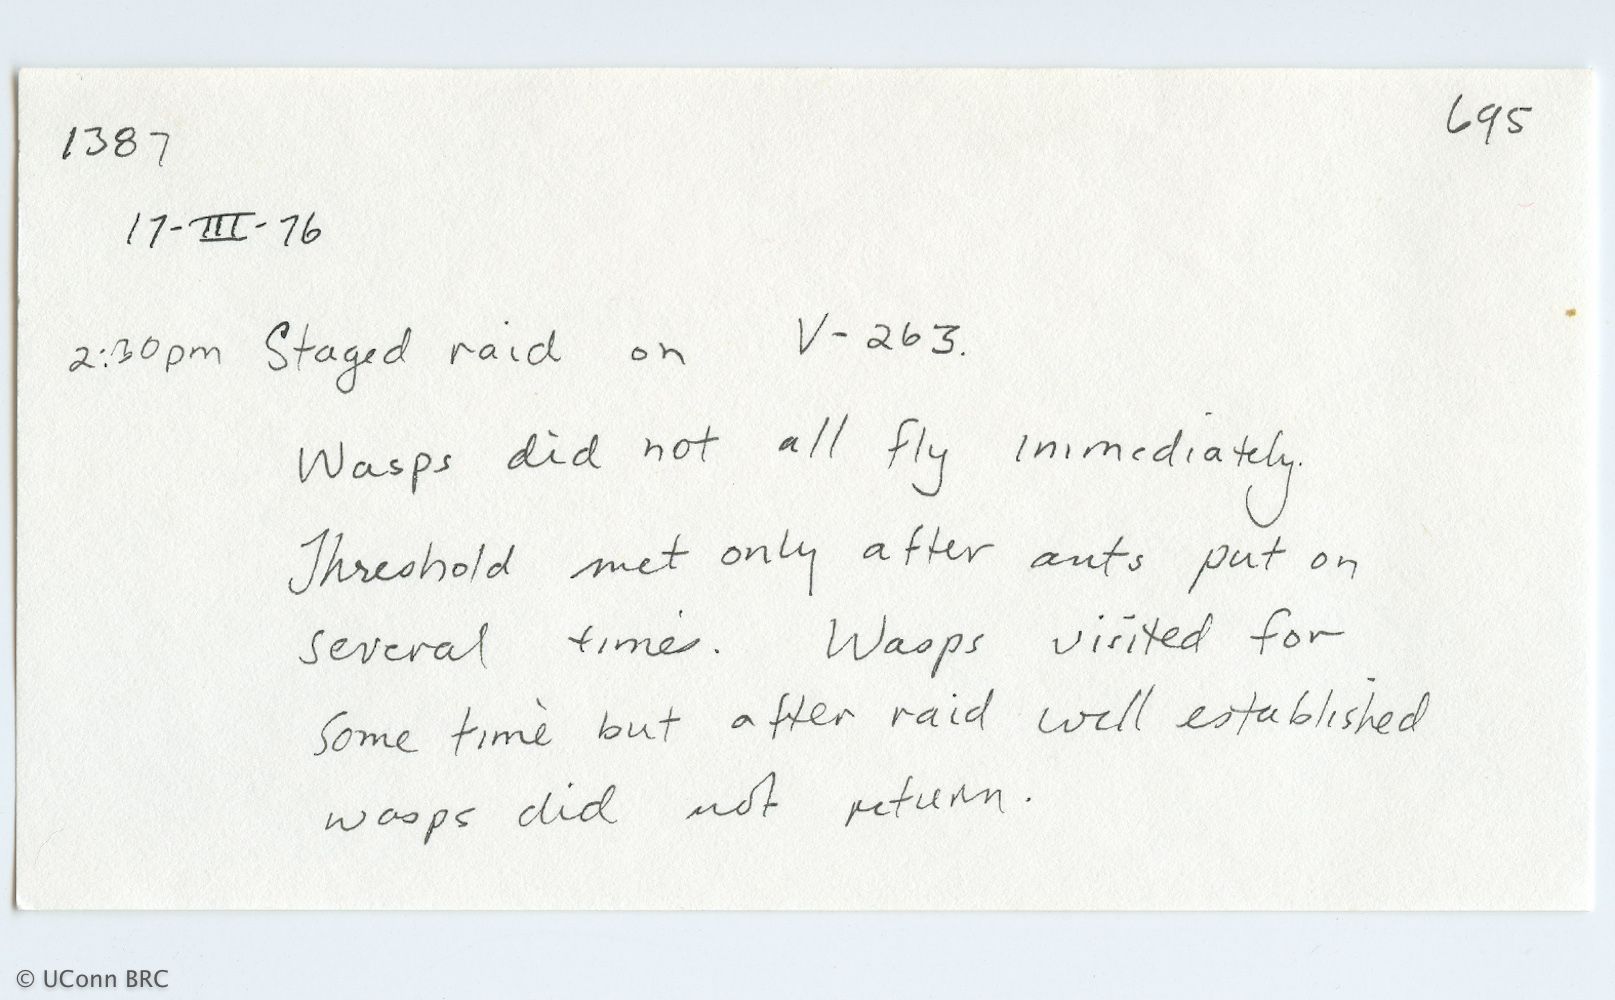 1387
695
17-III-76
2:30pm Staged raid on V-263.
Wasps did not all fly immediately.
Threshold met only after ants put on
several times. Wasps visited for
some time but after raid well established
wasps did not return.
© UConn BRC